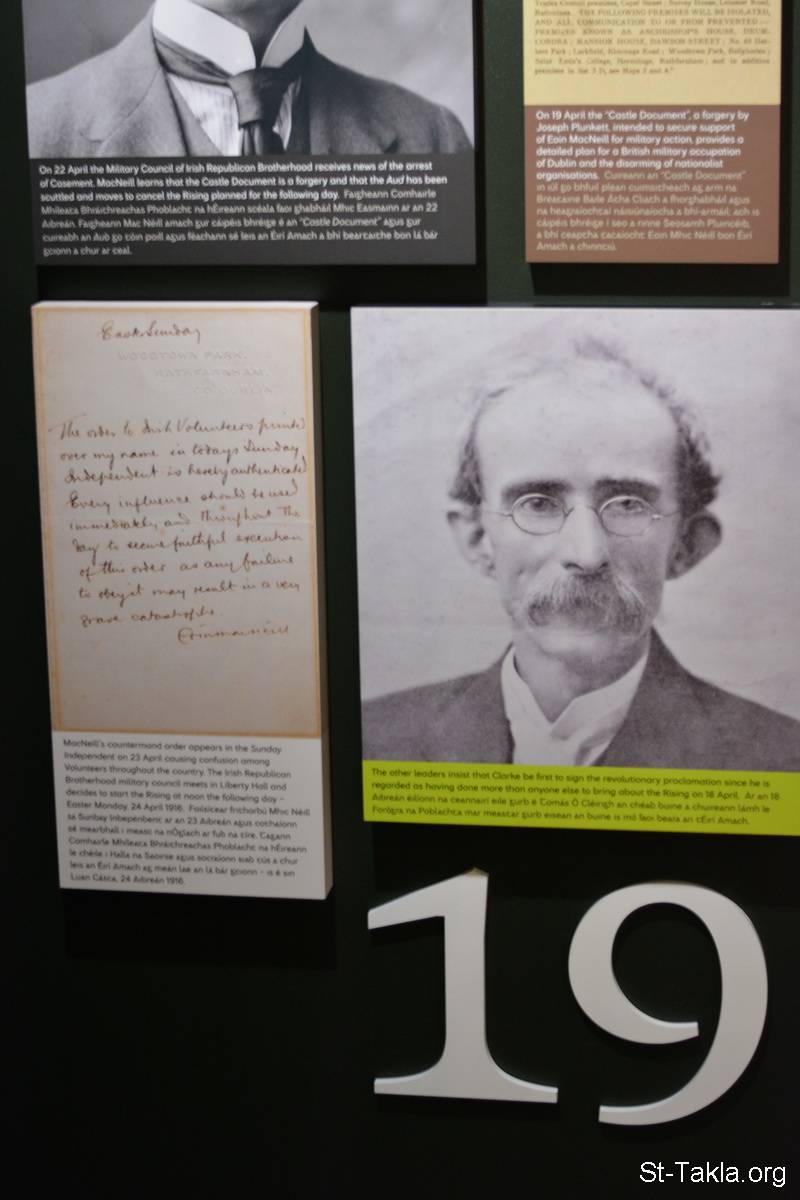 On 22 April the Military Council of Irish Republican Brotherhood receives news of the arrest
of Casement. MacNeill learns that the Castle Document is a forgery and that the Aud has been
scuttled and moves to cancel the Rising planned for the following day. Faigheann Comhairle
Mhíleata Bhráithreachas Phoblacht na hÉireann scéala faoi ghabháil Mhic Easmainn ar an 22
Aibreán. Faigheann Mac Néill amach gur cáipéis bhréige é an "Castle Document" agus gur
cuireadh an Aud go tóin poill agus féachann sé leis an Éirí Amach a bhí beartaithe don lá dár
gcionn a chur ar ceal.
AND ALL COMMUNICATION TO OR FROM PREVENTED:—
PREMISES KNOWN AS ARCHBISHOP'S HOUSE, DRUM-
CONDRA; MANSION HOUSE, DAWSON STREET; No. 40 Her-
bert Park; Larkfield, Kimmage Road; Woodtown Park, Ballyboden;
Saint Enda's College, Hermitage, Rathfarnham; and in addition
premises in list 5 D, see Maps 3 and 4."
On 19 April the "Castle Document", a forgery by
Joseph Plunkett, intended to secure support
of Eoin MacNeill for military action, provides a
detailed plan for a British military occupation
of Dublin and the disarming of nationalist
organisations. Cuireann an "Castle Document"
in iúl go bhfuil plean cuimsitheach ag arm na
Breataine Baile Átha Cliath a fhorghabháil agus
na heagraíochtaí náisiúnaíocha a dhí-armáil, ach is
cáipéis bhréige í seo a rinne Seosamh Pluincéid,
a bhí ceaptha tacaíocht Eoin Mhic Néill don Éirí
Amach a chinntiú.
Easter Sunday
WOODTOWN PARK,
RATHFARNHAM,
CO. DUBLIN
The order to Irish Volunteers printed
over my name in today's Sunday
Independent is hereby authenticated
Every influence should be used
immediately and throughout the
day to secure faithful execution
of this order as any failure
to obey it may result in a very
grave catastrophe.
Eoin MacNeill
MacNeill's countermand order appears in the Sunday
Independent on 23 April causing confusion among
Volunteers throughout the country. The Irish Republican
Brotherhood military council meets in Liberty Hall and
decides to start the Rising at noon the following day –
Easter Monday, 24 April 1916. Foilsítear frithordú Mhic Néill
sa Sunday Independent ar an 23 Aibreán agus cothaíonn
sé mearbhall i measc na nÓglach ar fud na tíre. Tagann
Comhairle Mhíleata Bhráithreachas Phoblacht na hÉireann
le chéile i Halla na Saoirse agus socraíonn siad tús a chur
leis an Éirí Amach ag meán lae an lá dár gcionn – is é sin
Luan Cásca, 24 Aibreán 1916.
The other leaders insist that Clarke be first to sign the revolutionary proclamation since he is
regarded as having done more than anyone else to bring about the Rising on 18 April. Ar an 18
Aibreán éilíonn na ceannairí eile gurb é Tomás Ó Cléirigh an chéad duine a chuireann lámh le
Forógra na Poblachta mar meastar gurb eisean an duine is mó faoi deara an tÉirí Amach.
19
St-Takla.org